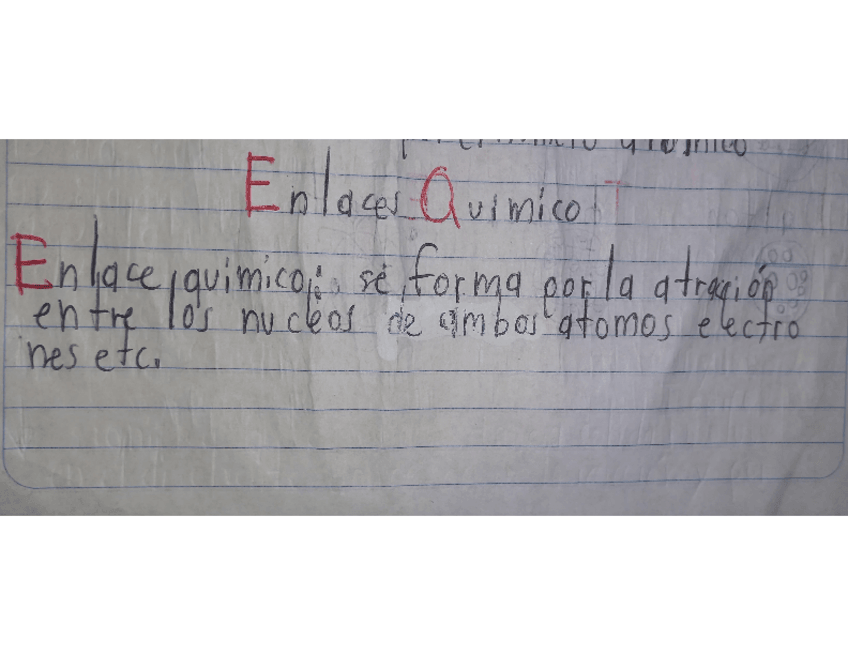 Enlaces Quimico
Enlace quimico: se forma por la atración
entre los nucleos de ambos atomos electro
nes etc.